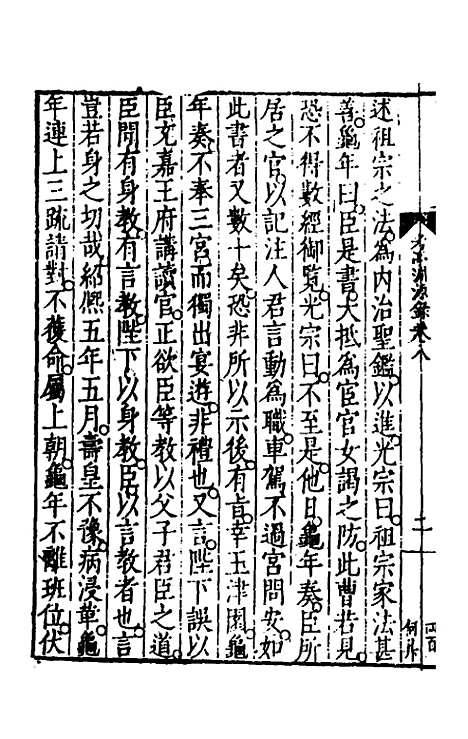 述祖宗之法為內治聖鑑以進光宗曰祖宗家法甚
善龜年曰臣是書大抵為宦官女謁之防此曹若見
恐不得數經御覽光宗曰不至是他日龜年奏臣所
居之官以記注人君言動為職車駕不過宮問安如
此書者又數十矣恐非所以示後有旨幸玉津園龜
年奏不奉三宮而獨出宴遊非禮也又言陛下誤以
臣充嘉王府講讀官正欲臣等教以父子君臣之道
臣聞有身教有言教陛下以身教臣以言教者也言
豈若身之切哉紹熙五年五月壽皇不豫病浸革龜
年連上三疏請對不獲命屬上朝龜年不離班位伏
考亭淵源錄卷八
二